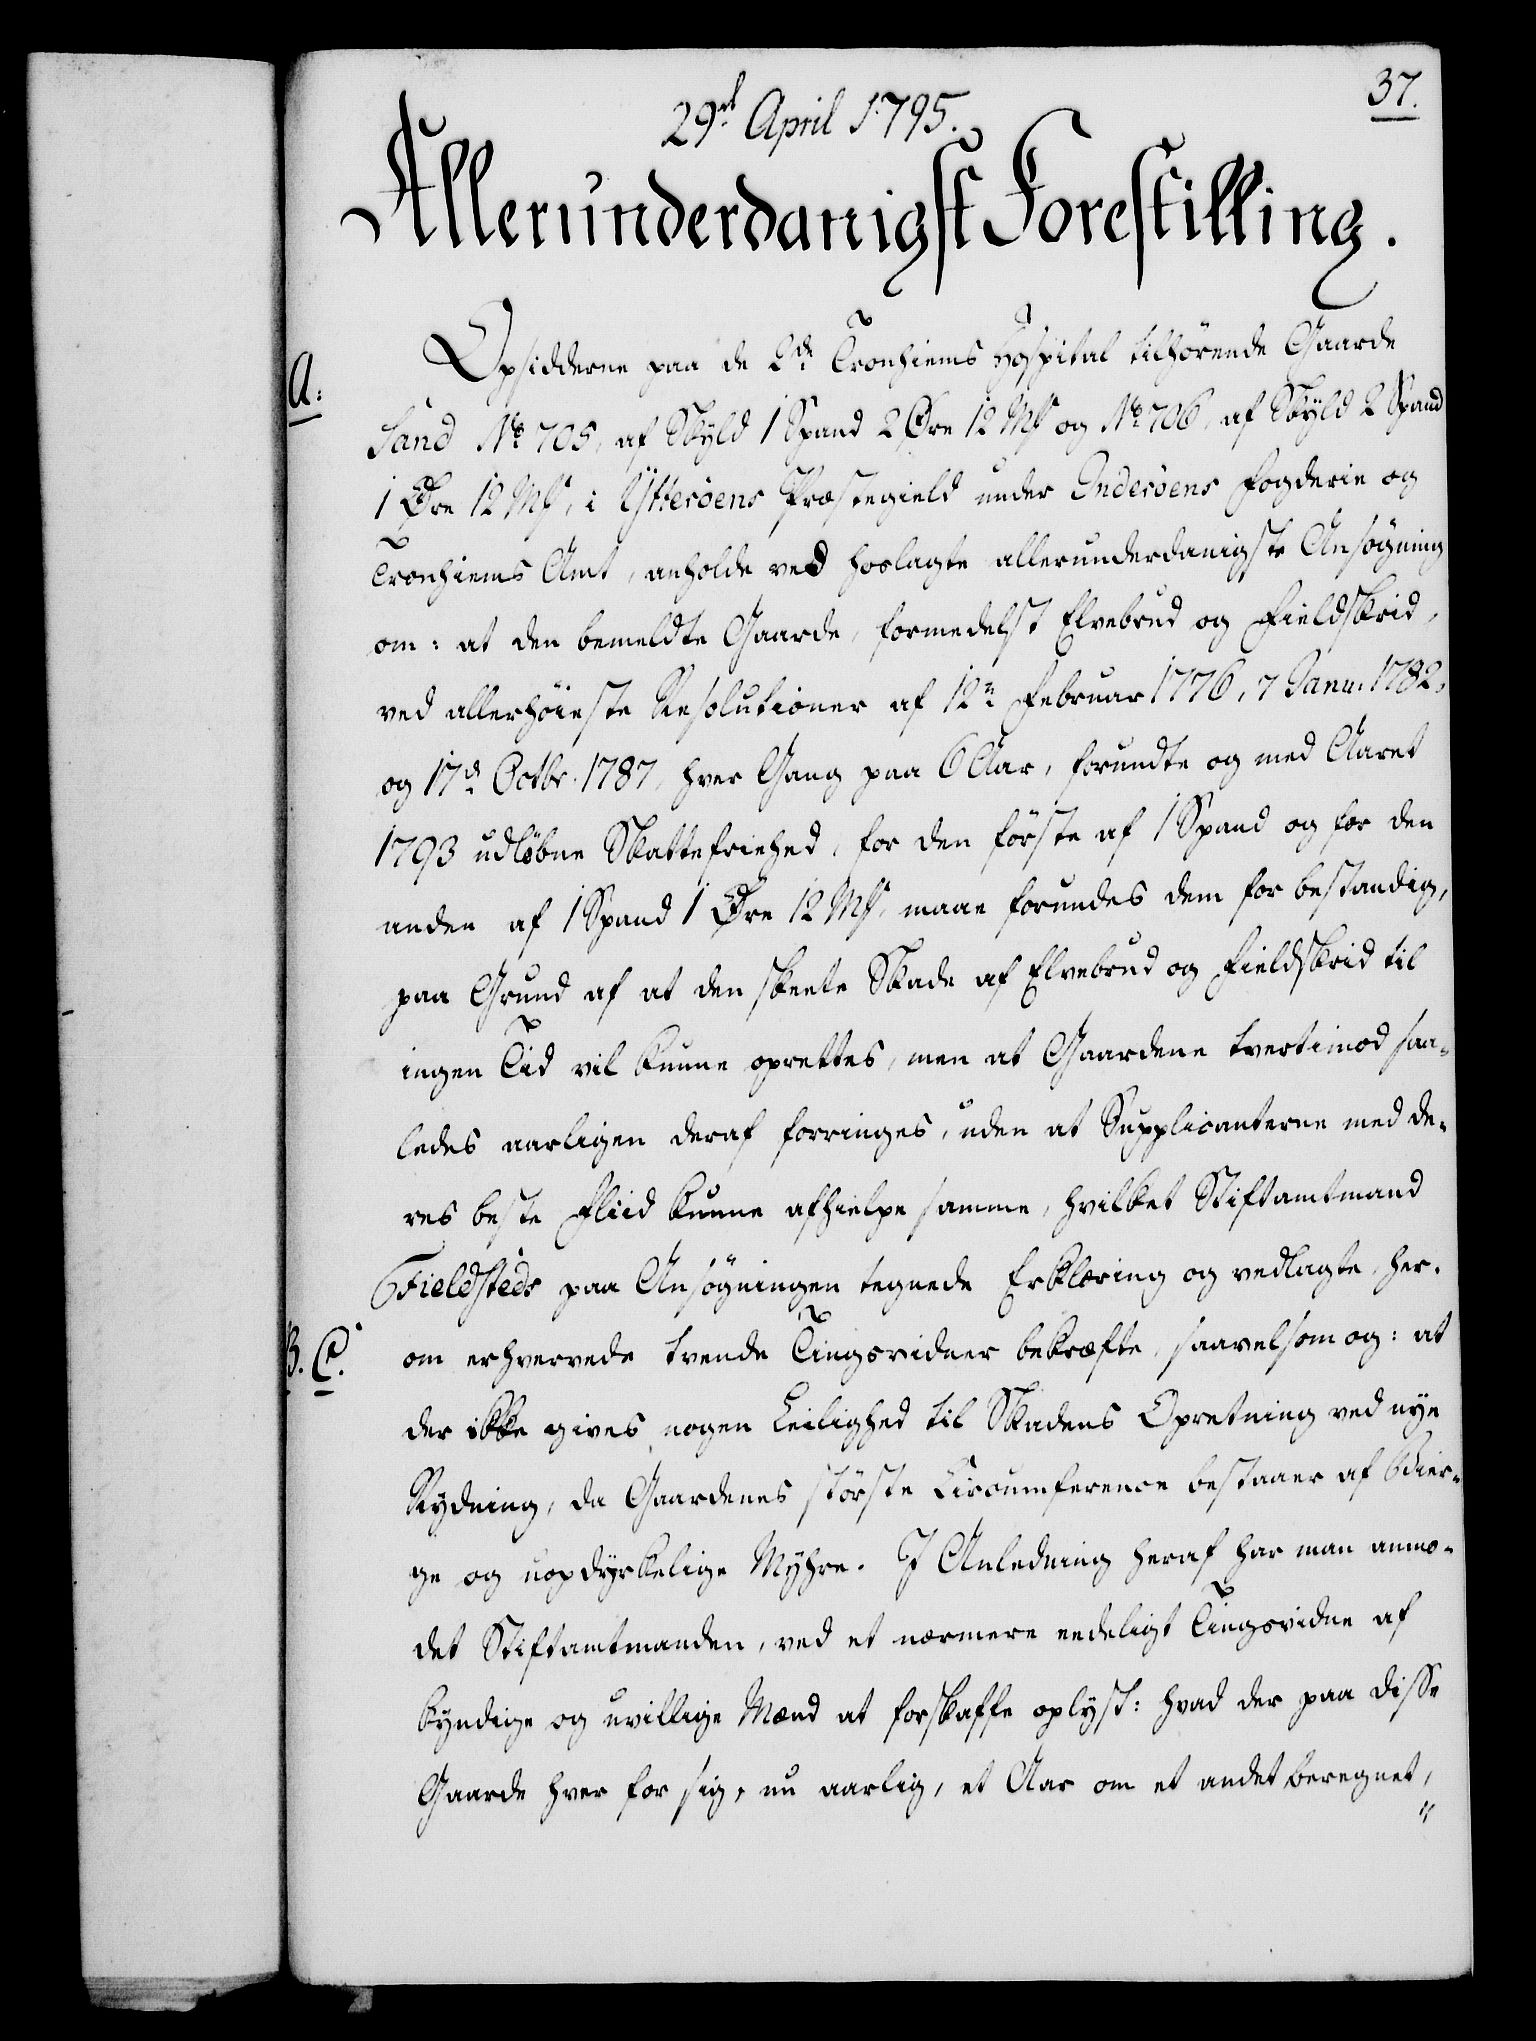 37.
29d April 1795.
Allerunderdanigst Forestilling.
A:
Opsidderne paa de 2de Tronhiems Hospital tilhørende Gaarde
Sand No 705, af Skyld 1 Spand 2 Øre 12 Mk og No 706, af Skyld 2 Spand
1 Øre 12 Mk, i Ytterøens Præstegield under Inderøens Fogderie og
Tronhiems Amt, anholde ved hoslagte allerunderdanigste Ansøgning
om: at den bemeldte Gaarde, formedelst Elvebrud og Fieldskrid,
ved allerhøieste Resolutioner af 12te Februar 1776, 7 Janu. 1782,
og 17de Octbr. 1787, hver Gang paa 6 Aar, forundte og med Aaret
1793 udløbne Skattefriehed, for den første af 1 Spand og for den
anden af 1 Spand 1 Øre 12 Mk, maae forundes dem for bestandig,
paa Grund af at den skeete Skade af Elvebrud og Fieldskrid til
ingen Tid vil kunne oprettes, men at Gaardene tvertimod saa-
ledes aarligen deraf forringes, uden at Supplicanterne med de-
res beste Fliid kunne afhielpe samme, hvilket Stiftamtmand
Fieldsteds paa Ansøgningen tegnede Erklæring og vedlagte, her-
B. C.
om erhvervede tvende Tingsvidner bekræfte, saavelsom og: at
der ikke gives nogen Leilighed til Skadens Opretning ved nye
Rydning, da Gaardenes største Circumference bestaaer af Bier-
ge og uopdyrkelige Myhre. I Anledning heraf har man anmo-
det Stiftamtmanden, ved et nærmere eedeligt Tingsvidne af
kyndige og uvillige Mænd at forskaffe oplyst: hvad der paa disse
Gaarde hver for sig, nu aarlig, et Aar om et andet beregnet,